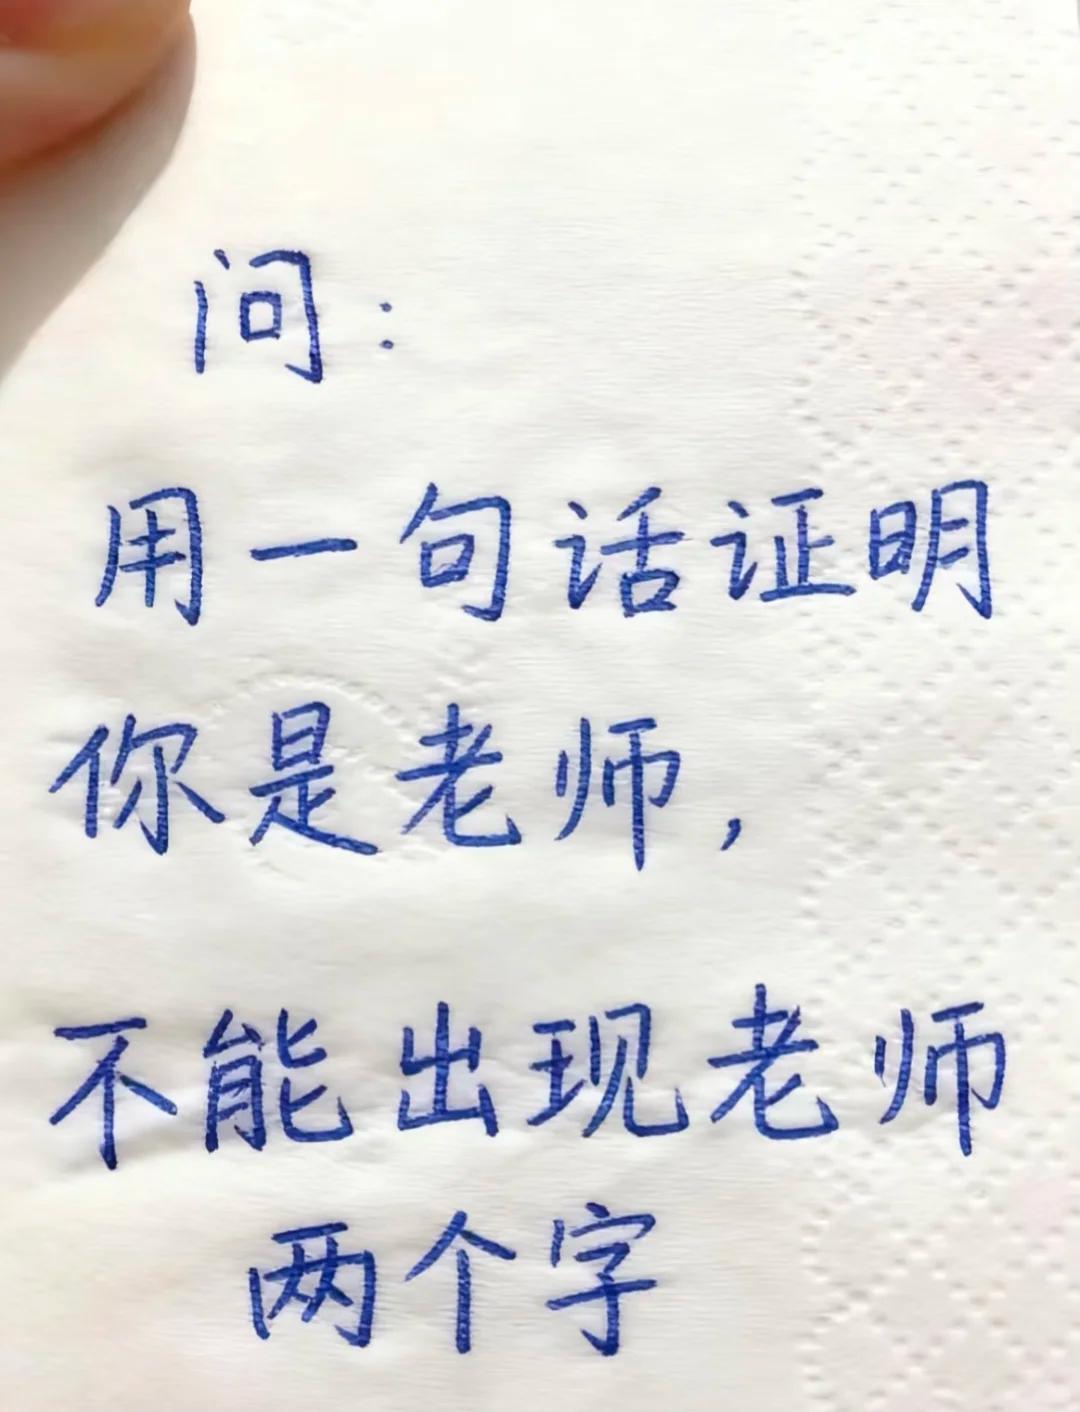 问：
用一句话证明
你是老师，
不能出现老师
两个字